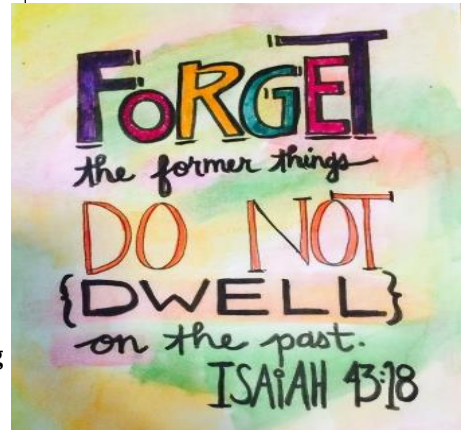 FORGET
the former things
DO NOT
{DWELL}
on the past.
ISAiAH 43:18